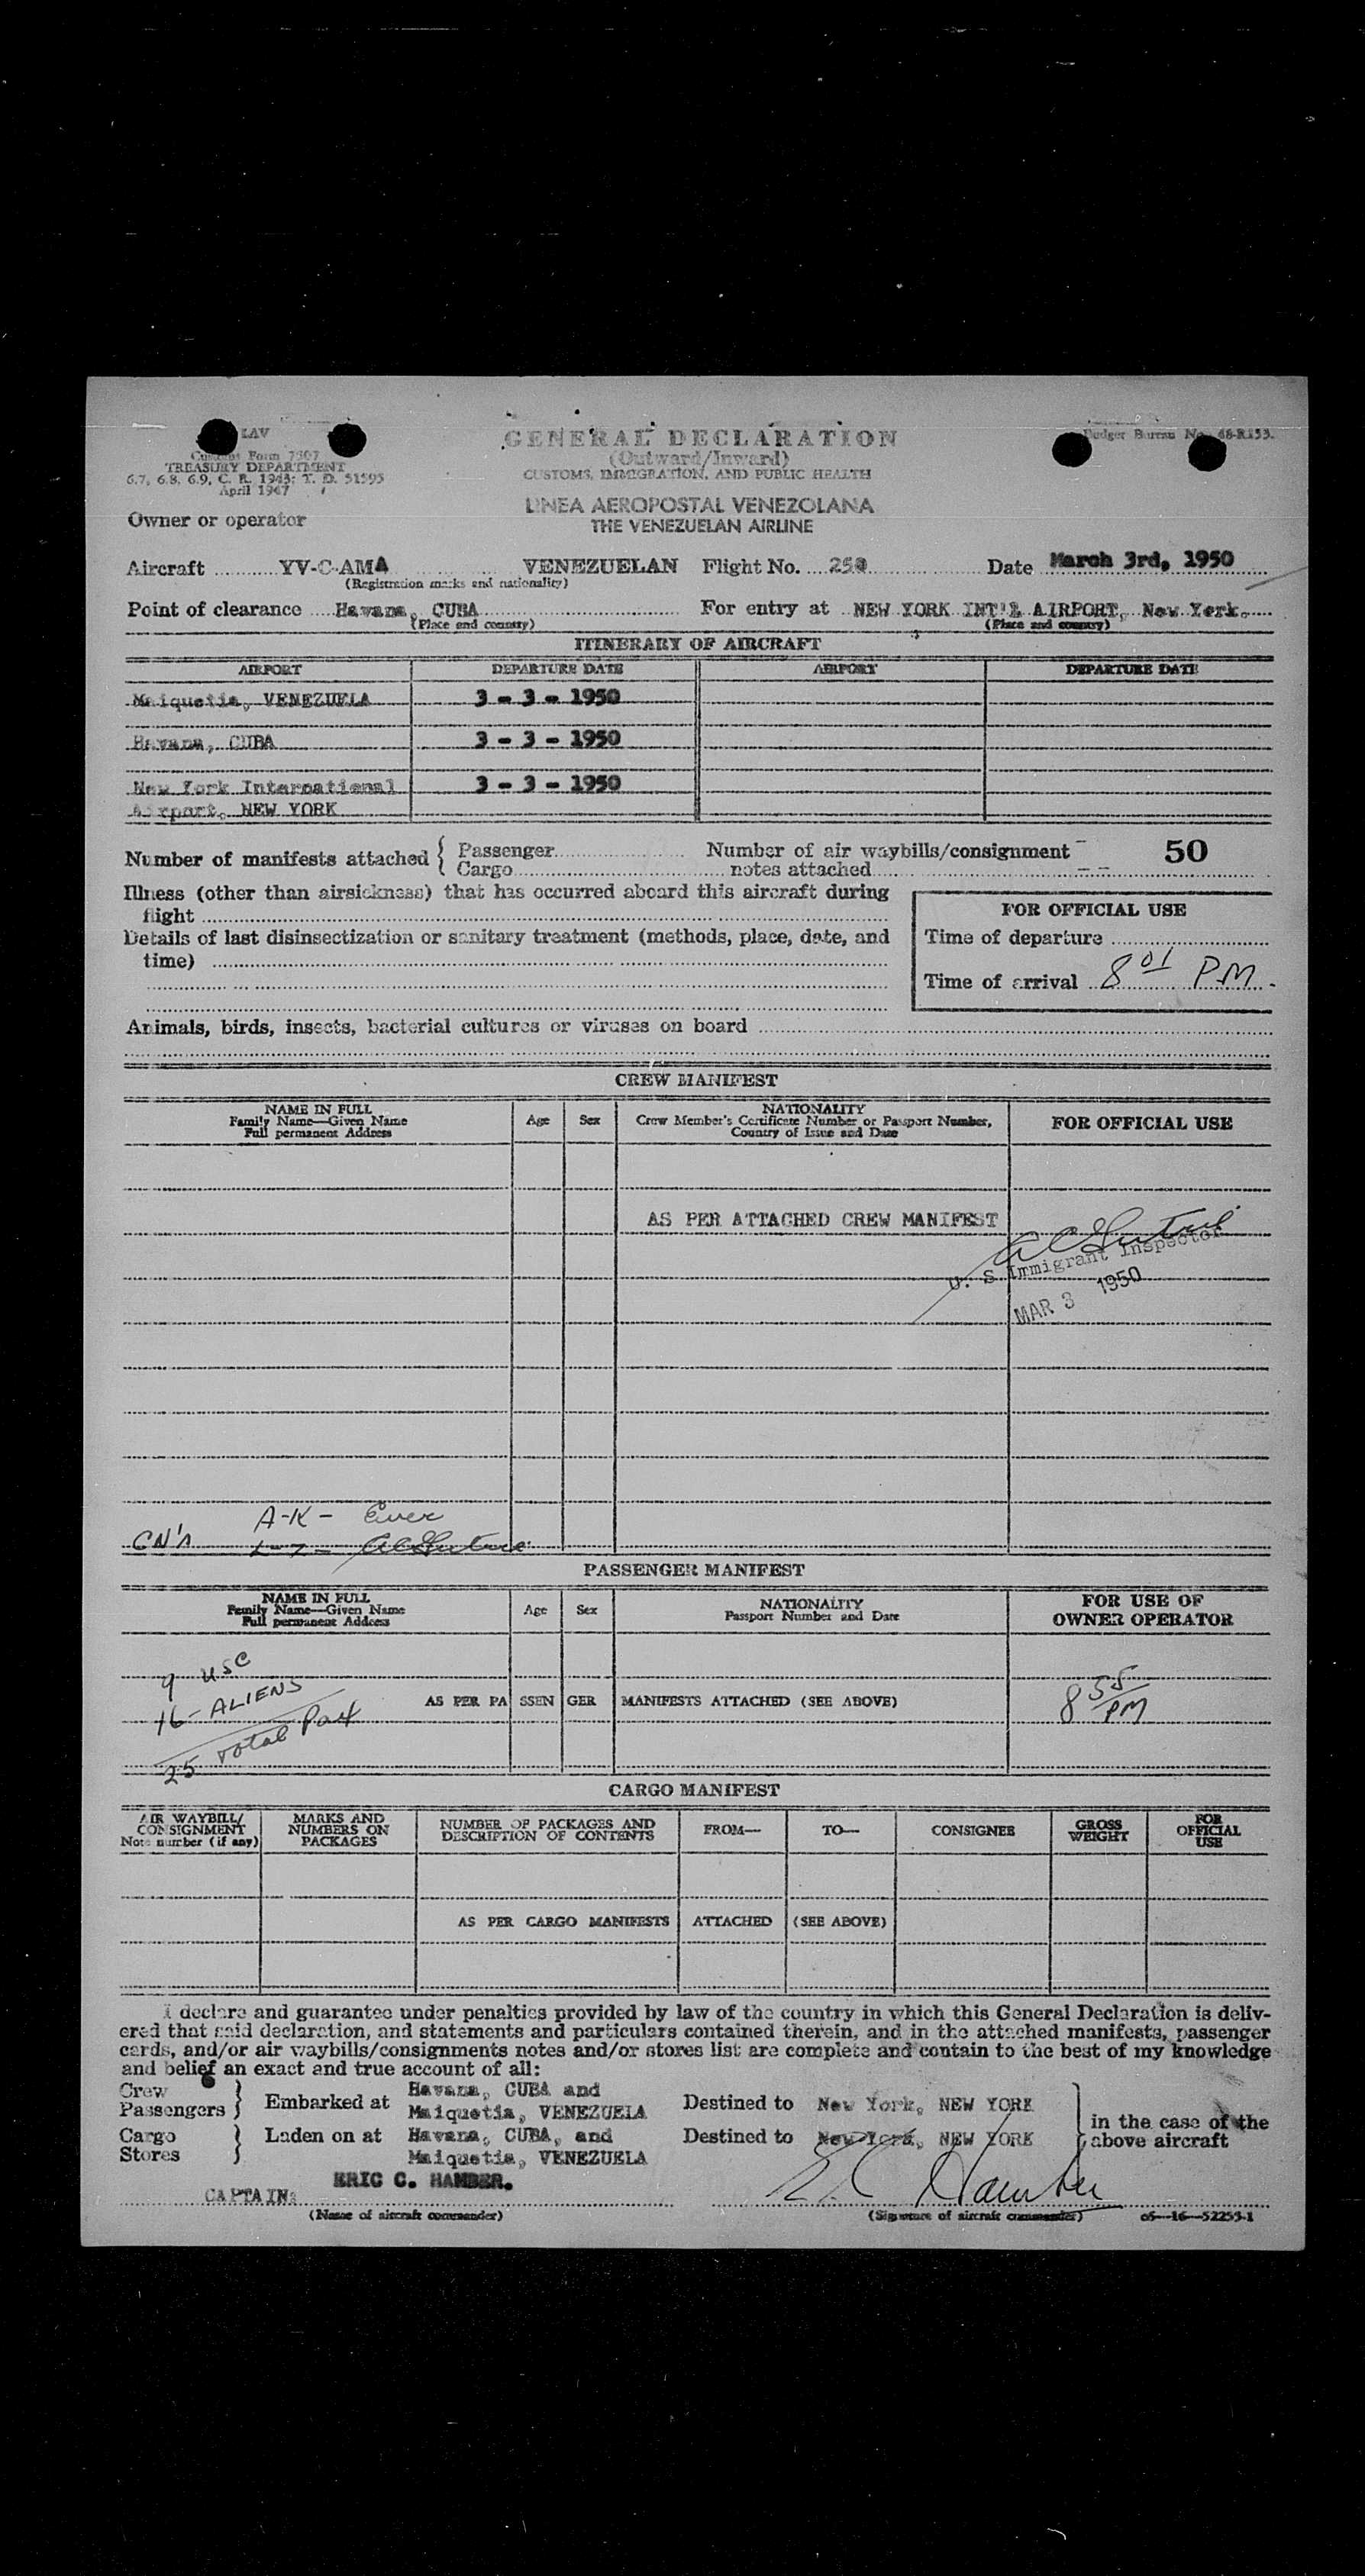 LAV
Customs Form 7507
TREASURY DEPARTMENT
6.7, 6.8, 6.9, C. R. 1943: T. D. 51595
April 1947
GENERAL DECLARATION
(Outward/Inward)
CUSTOMS, IMMIGRATION, AND PUBLIC HEALTH
Budget Bureau No. 48-R153.
LINEA AEROPOSTAL VENEZOLANA
THE VENEZUELAN AIRLINE
Owner or operator
Aircraft YV-C-AMA VENEZUELAN Flight No. 250 Date March 3rd, 1950
(Registration marks and nationality)
Point of clearance Havana, CUBA For entry at NEW YORK INT'L AIRPORT, New York.
(Place and country) (Place and country)
ITINERARY OF AIRCRAFT
AIRPORT DEPARTURE DATE AIRPORT DEPARTURE DATE
Maiquetia, VENEZUELA 3 - 3 - 1950
Havana, CUBA 3 - 3 - 1950
New York International 3 - 3 - 1950
Airport, NEW YORK
Number of manifests attached { Passenger Number of air waybills/consignment 50
Cargo notes attached
Illness (other than airsickness) that has occurred aboard this aircraft during
flight
FOR OFFICIAL USE
Details of last disinsectization or sanitary treatment (methods, place, date, and
time)
Time of departure
Time of arrival 8 01 PM.
Animals, birds, insects, bacterial cultures or viruses on board
CREW MANIFEST
NAME IN FULL
Family Name—Given Name
Full permanent Address
Age Sex
NATIONALITY
Crew Member's Certificate Number or Passport Number,
Country of Issue and Date
FOR OFFICIAL USE
AS PER ATTACHED CREW MANIFEST
U. S. Immigrant Inspector
MAR 3 1950
A-K -
CN's L-Z -
PASSENGER MANIFEST
NAME IN FULL
Family Name—Given Name
Full permanent Address
Age Sex
NATIONALITY
Passport Number and Date
FOR USE OF
OWNER OPERATOR
9 USC
16 - ALIENS
25 Total Pax
AS PER PASSENGER MANIFESTS ATTACHED (SEE ABOVE)
8 55 PM
CARGO MANIFEST
AIR WAYBILL/
CONSIGNMENT
Note number (if any)
MARKS AND
NUMBERS ON
PACKAGES
NUMBER OF PACKAGES AND
DESCRIPTION OF CONTENTS
FROM— TO— CONSIGNEE
GROSS
WEIGHT
FOR
OFFICIAL
USE
AS PER CARGO MANIFESTS ATTACHED (SEE ABOVE)
I declare and guarantee under penalties provided by law of the country in which this General Declaration is deliv-
ered that said declaration, and statements and particulars contained therein, and in the attached manifests, passenger
cards, and/or air waybills/consignments notes and/or stores list are complete and contain to the best of my knowledge
and belief an exact and true account of all:
Crew
Passengers } Embarked at Havana, CUBA and
Maiquetia, VENEZUELA Destined to New York, NEW YORK
Cargo
Stores } Laden on at Havana, CUBA, and
Maiquetia, VENEZUELA Destined to New York, NEW YORK
in the case of the
above aircraft
CAPTAIN: ERIC C. HAMBER.
E C Hamber
(Name of aircraft commander) (Signature of aircraft commander) 65—16—52255-1